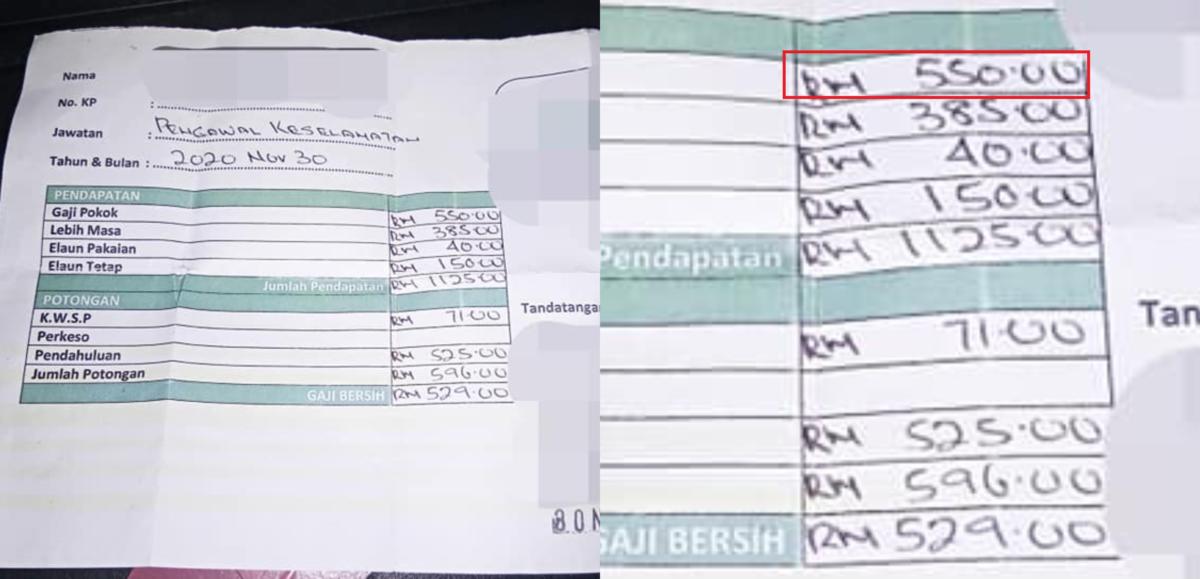 Nama
No. KP :
Jawatan : PENGAWAL KESELAMATAN
Tahun & Bulan : 2020 Nov 30
PENDAPATAN
Gaji Pokok RM 550.00
Lebih Masa RM 385.00
Elaun Pakaian RM 40.00
Elaun Tetap RM 150.00
Jumlah Pendapatan RM 1125.00
POTONGAN
K.W.S.P RM 71.00
Perkeso
Pendahuluan RM 525.00
Jumlah Potongan RM 596.00
GAJI BERSIH RM 529.00
Tandatangan
30 N
RM 550.00
RM 385.00
RM 40.00
RM 150.00
Pendapatan RM 1125.00
RM 71.00
Tan
RM 525.00
RM 596.00
GAJI BERSIH RM 529.00